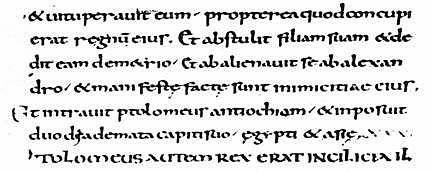 & uituperauit eum propterea quod concupi
erat regnū eius. Et abstulit filiam suam & de
dit eam demetrio & abalienauit se ab alexan
dro & manifestę factę sunt inimicitiae eius.
Et intrauit ptolomeus antiochiam & inposuit
duo diademata capiti suo egypti & asię
PTOLOMEUS AUTEM REX ERAT IN CILICIA IL